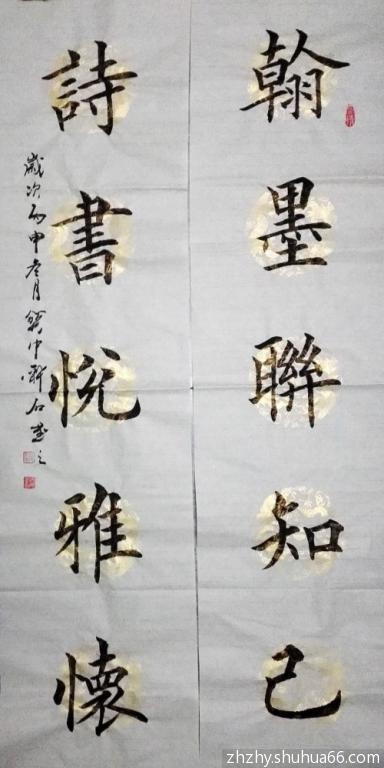 翰墨聯知己
詩書悅雅懷
歲次丙申冬月
zhzhy.shuhua66.com